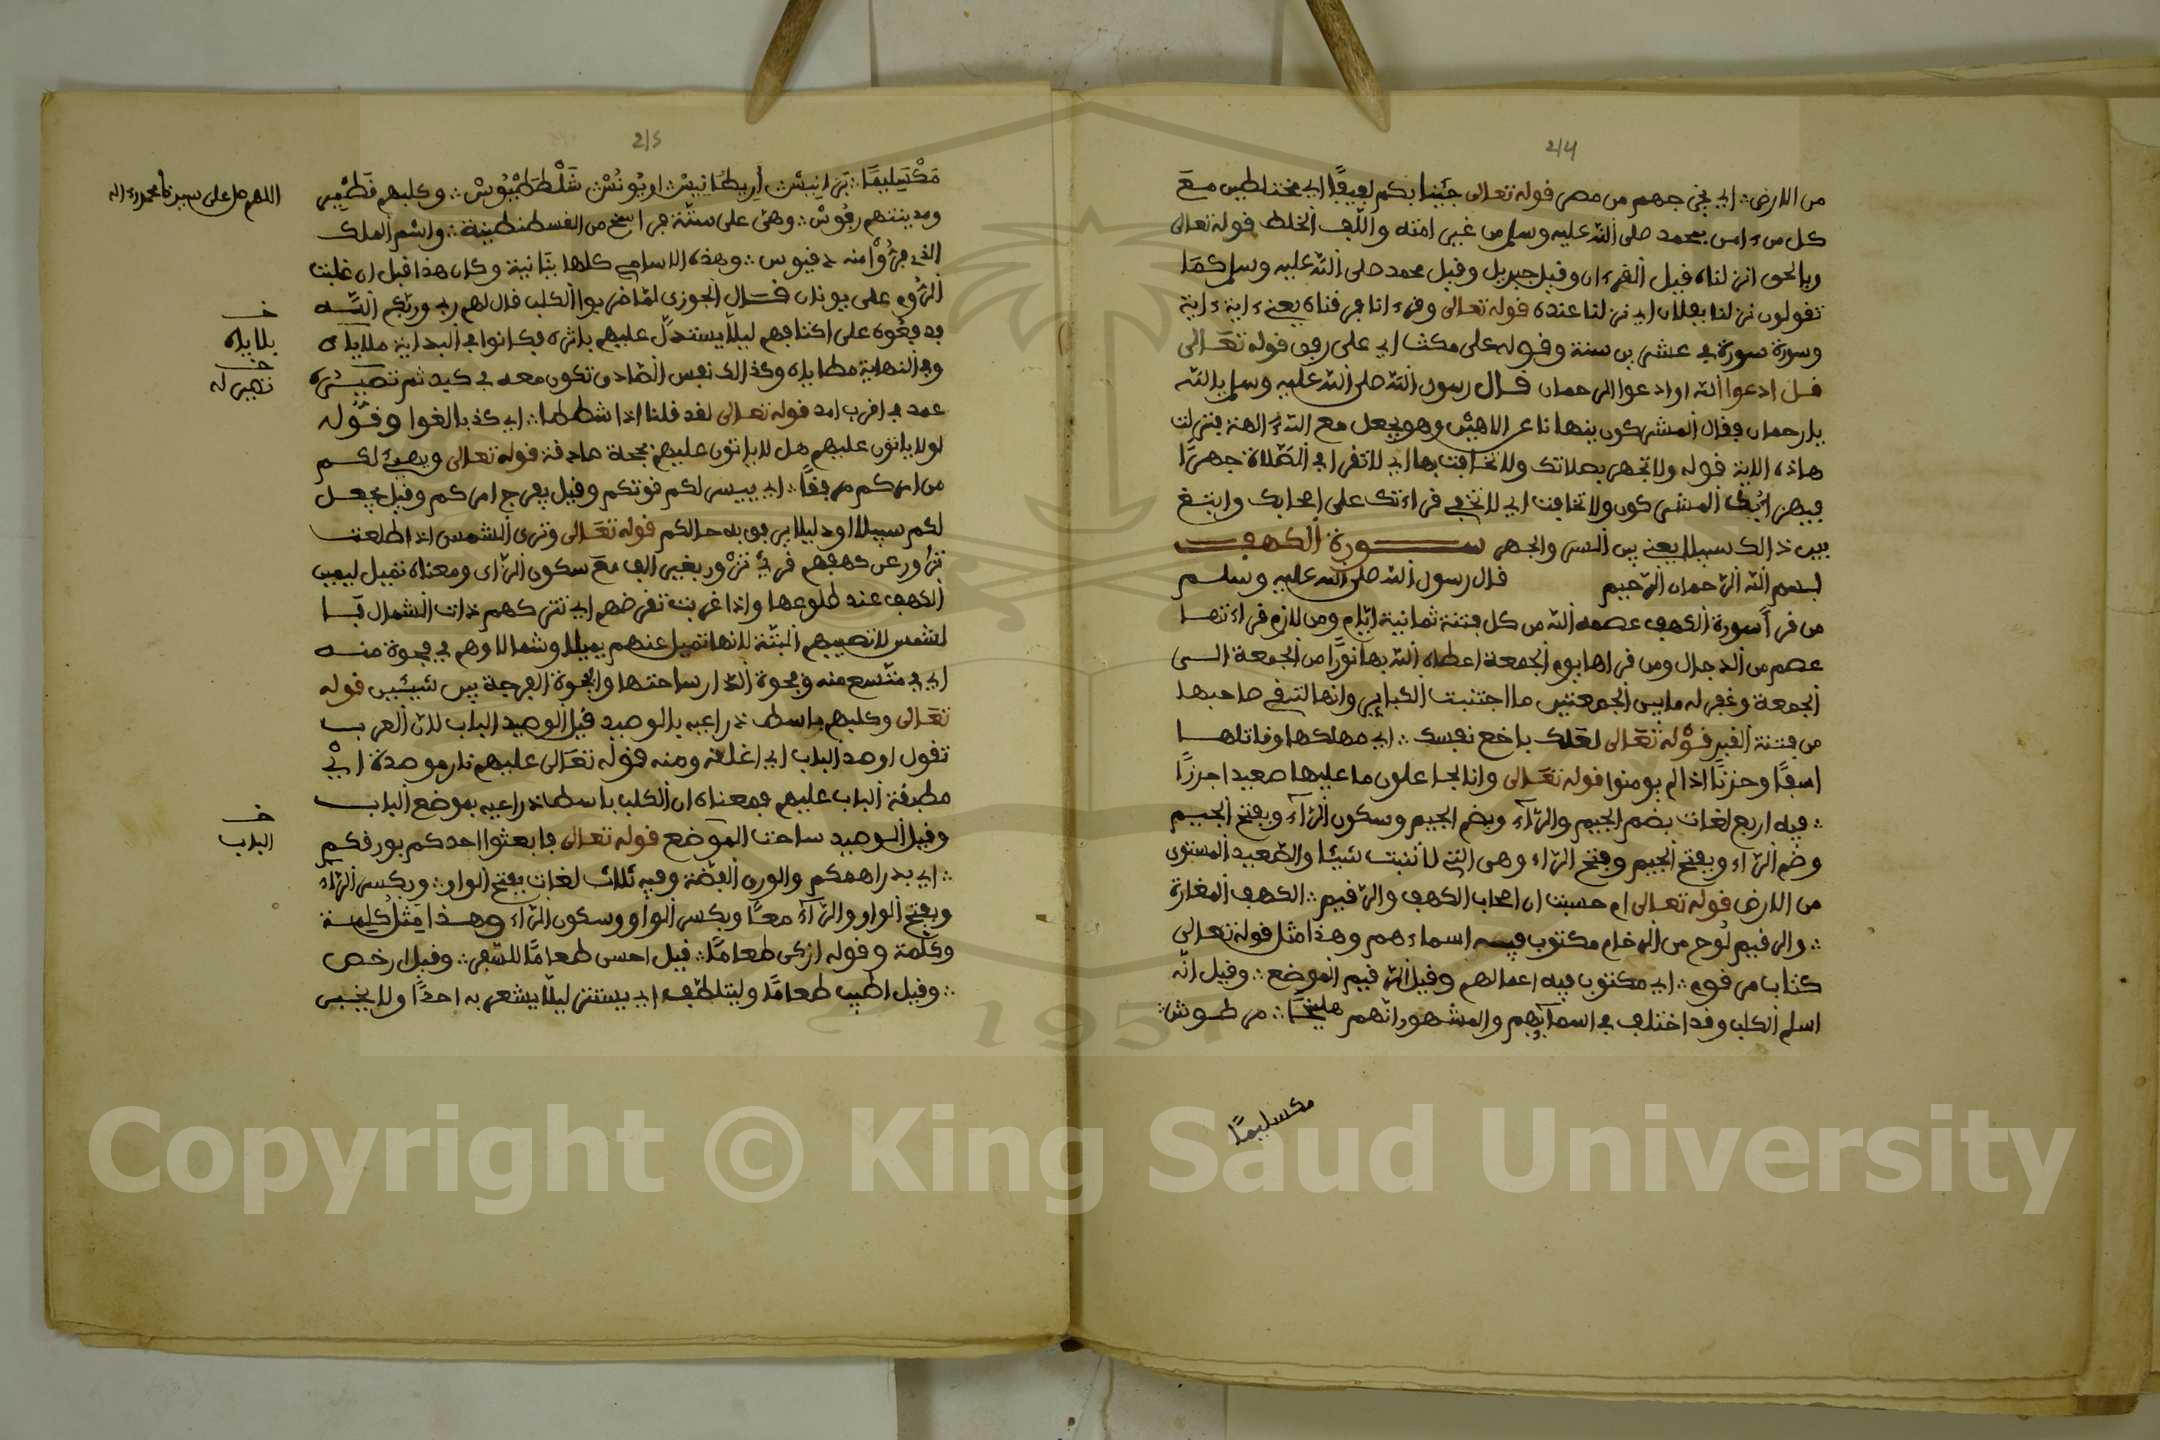 214
من الارض ؞ اي يخرجهم من مصر قوله تعالى جئنا بكم لفيفا اي مختلطين مع
كل من ءامن بمحمد صلى الله عليه وسلم من غير امته واللف الخلط قوله تعالى
وبالحق انزلناه قيل القرءان وقيل جبريل وقيل محمد صلى الله عليه وسلم كما
تقولون نزلنا بفلان اي نزلنا عنده قوله تعالى وقرءانا فرقناه يعني ءاية ءاية
وسورة سورة في عشرين سنة وقوله على مكث اي على رفق قوله تعالى
قل ادعوا الله او ادعوا الرحمان قال رسول الله صلى الله عليه وسلم يا الله
يا رحمان فقال المشركون ينهانا عن الاهين وهو يجعل مع الله الهة فنزلت
هاذه الاية قوله ولا تجهر بصلاتك ولا تخافت بها اي لا تقرا في الصلاة جهرا
المشركون ولا تخافت اي لا تخفي قراءتك على اصحابك وابتغ
بين ذالك سبيلا يعني بين السر والجهر سورة الكهف
بسم الله الرحمان الرحيم قال رسول الله صلى الله عليه وسلم
من قرأ سورة الكهف عصمه الله من كل فتنة ثمانية ايام ومن لازم قراءتها
عصم من الدجال ومن قراها يوم الجمعة اعطاه الله بها نورا من الجمعة الى
الجمعة وغفر له ما بين الجمعتين ما اجتنبت الكباير وانها لتقي صاحبها
من فتنة القبر قوله تعالى لعلك باخع نفسك ؞ اي مهلكها وقاتلها
اسفا وحزنا اذ لم يومنوا قوله تعالى وانا لجاعلون ما عليها صعيدا جرزا
؞ فيه اربع لغات بضم الجيم والراء وبضم الجيم وسكون الراء وبفتح الجيم
وضم الراء وبفتح الجيم وفتح الراء وهي التي لا تنبت شيئا والصعيد المستوى
من الارض قوله تعالى ام حسبت ان اصحاب الكهف والرقيم ؞ الكهف المغارة
؞ والرقيم لوح من الرخام مكتوب فيه اسماءهم وهذا مثل قوله تعالى
كتاب مرقوم ؞ اي مكتوب فيه اعمالهم وقيل الرقيم الموضع ؞ وقيل انه
اسلم الكلب وقد اختلف في اسمآيهم والمشهور انهم ؞ مرطوش ؞
مكسليمًا
215
مَكْتَسِلِيمًا ؞ وكلبهم قطمير
ومدينتهم رفوس ؞ وهي على ستة فراسخ من القسطنطينية ؞ واسم الملك
الذي فروا منه دقيوس ؞ وهذه الاسامي كلها يونانية وكان هذا قبل ان غلبت
الروم على يونان قال الجوزي لما ضربوا الكلب قال لهم ربي وربكم الله
فدفعوه على اكتافهم ليلا يستدل عليهم باثره فكانوا في البداية
وفي النهاية مطاياه وكذالك نفس الصادق تكون معه في كيد ثم
قوله تعالى لقد قلنا اذا شططا ؞ اي كذبا لغوا وقوله
لولا ياتون عليهم هل لا ياتون عليهم بحجة صادقة قوله تعالى ويهيئ لكم
من امركم مرفقا ؞ اي ييسر لكم قوتكم وقيل يفرج امركم وقيل يجعل
لكم سبيلا او دليلا يرفق به حالكم قوله تعالى وترى الشمس اذا طلعت
تزاور عن كهفهم قرئ تزور بغير الف مع سكون الزاى ومعناه تميل ليمين
الكهف عند طلوعها واذا غربت تقرضهم اي تتركهم ذات الشمال فا
لشمس لا تصيبهم البتة لانها تميل عنهم يمينا وشمالا وهم في فجوة منه
اي في متسع منه وفجوة الدار ساحتها والفجوة الفرجة بين شيئين قوله
تعالى وكلبهم باسط ذراعيه بالوصيد قيل الوصيد الباب لان العرب
تقول اوصد الباب اي اغلقه ومنه قوله تعالى عليهم نار موصدة اي
مطبقة الباب عليهم فمعناه ان الكلب باسط ذراعيه بموضع الباب
وقيل الوصيد ساحت الموضع قوله تعالى فابعثوا احدكم بورقكم
؞ اي بدراهمكم والورق الفضة وفيه ثلاث لغات بفتح الواو ؞ وبكسر الراء
وبفتح الواو والراء معا وبكسر الواو وسكون الراء وهذا مثل كلمة
وكلمة وقوله ازكى طعاما ؞ قيل احسن طعاما للسفر ؞ وقيل ارخص
؞ وقيل اطيب طعاما وليتلطف اي يستتر ليلا يشعر به احدا ولا يخبر
اللهم صل على سيدنا محمد وءاله
خ
خ
خ
الباب
Copyright © King Saud University
1957